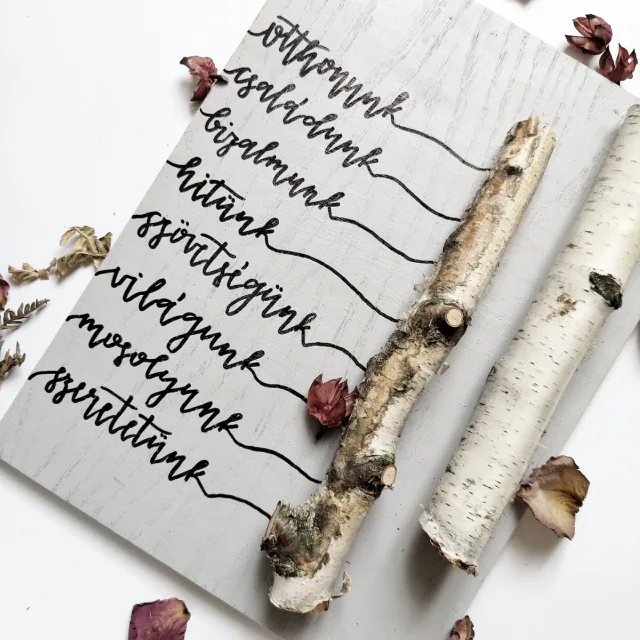 otthonunk
családunk
bizalmunk
hitünk
szövetségünk
világunk
mosolyunk
szeretetünk